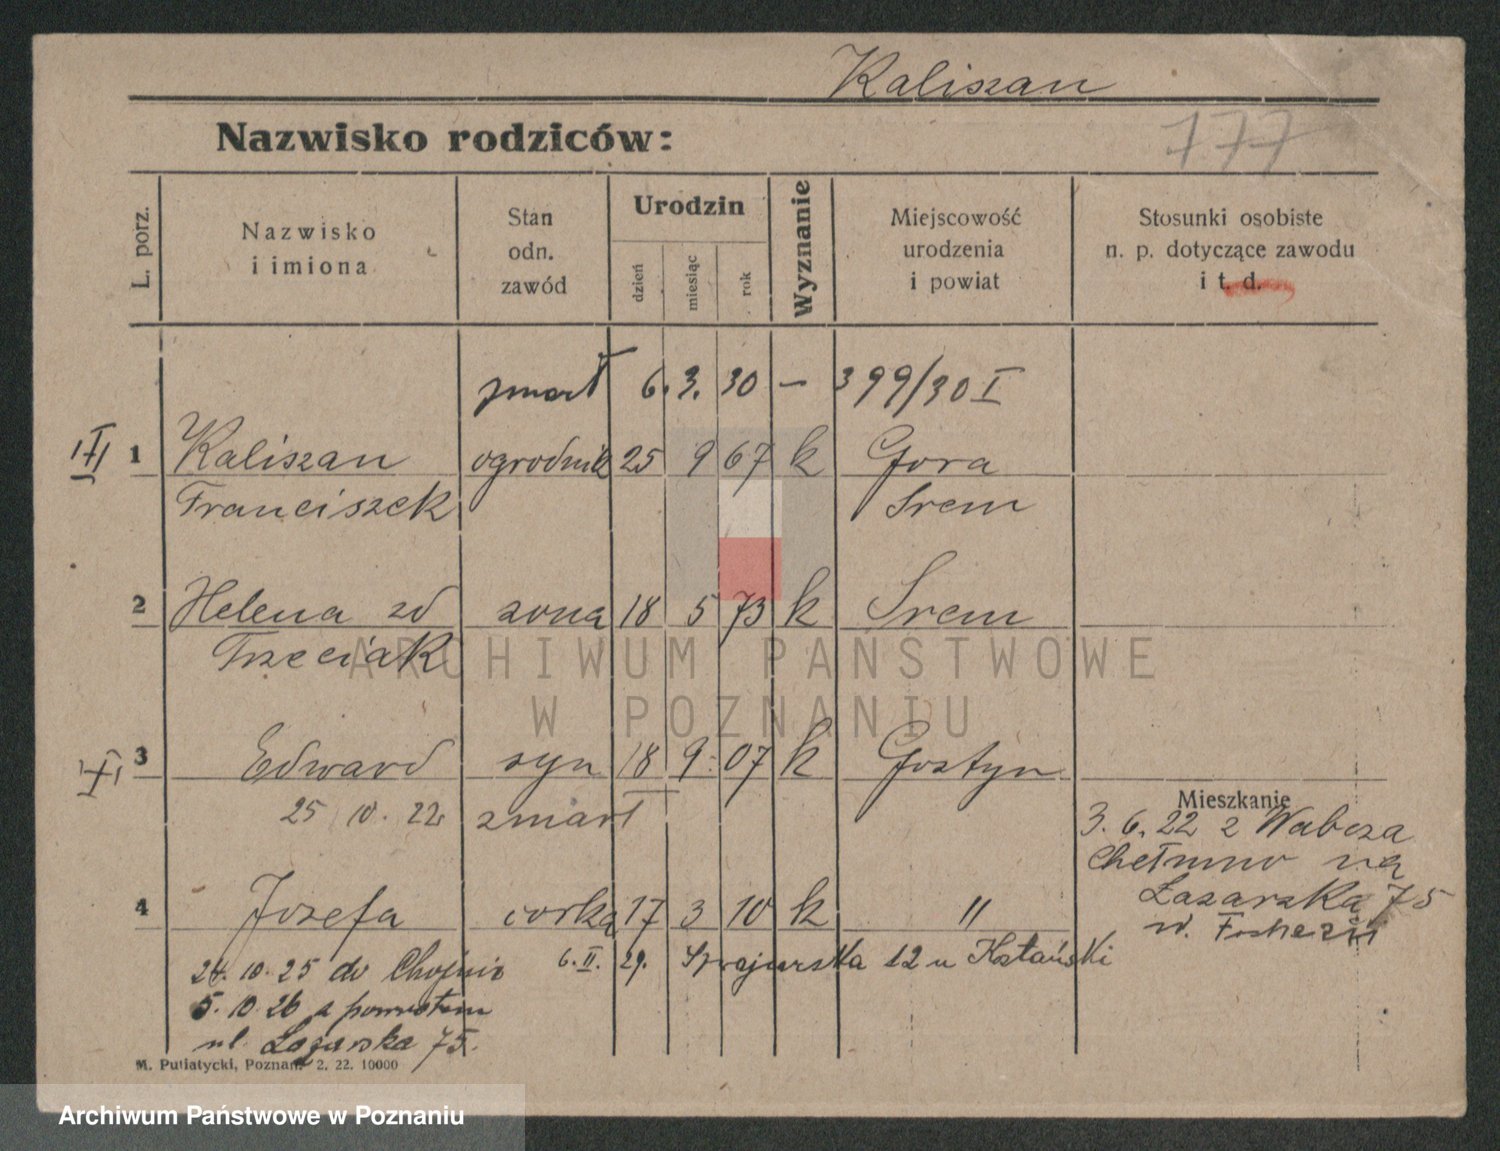 Kaliszan
Nazwisko rodziców:
177
L. porz.
Nazwisko
i imiona
Stan
odn.
zawód
Urodzin
dzień
miesiąc
rok
Wyznanie
Miejscowość
urodzenia
i powiat
Stosunki osobiste
n. p. dotyczące zawodu
i t. d.
zmarł 6. 3. 30 — 399/30 I
1 Kaliszan ogrodnik 25 9 67 k Gora
Franciszek Srem
2 Helena zd zona 18 5 73 k Srem
Trzeciak
3 Edward syn 18 9 07 k Gostyn
25 10. 22 zmarł
Mieszkanie
3. 6. 22 z Wabcza
Chełmno na
Łazarska 75
4 Jozefa corka 17 3 10 k "
24. 10. 25 do
6. II. 29. 12 u
5. 10. 26 z powrotem
ul. Łazarska 75.
M. Putiatycki, Poznań 2. 22. 10000
ARCHIWUM PAŃSTWOWE
W POZNANIU
Archiwum Państwowe w Poznaniu